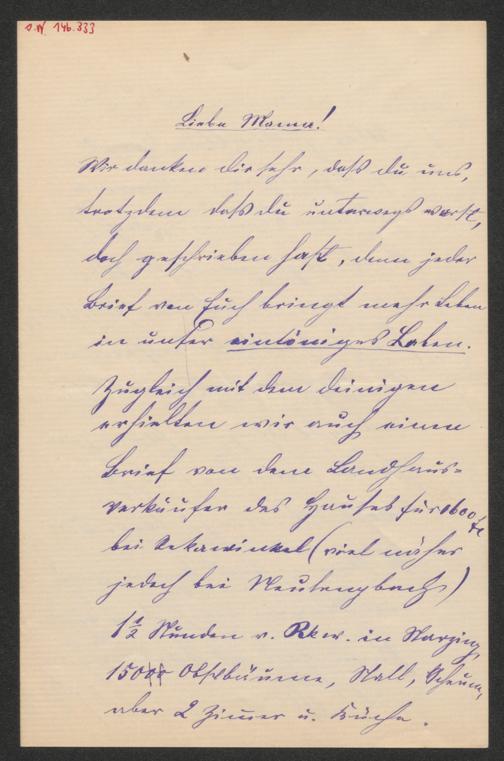 I.N. 146.333
Liebe Mama!
Wir danken dir sehr, daß du uns,
trotzdem daß du unterwegs warst,
doch geschrieben hast, denn jeder
Brief von Euch bringt mehr Leben
in unser eintöniges Leben.
Zugleich mit dem deinigen
erhielten wir auch einen
Brief von dem Landhaus=
verkäufer des Hauses für 1600 fl
bei Rekawinkel (viel näher
jedoch bei Neulengbach)
1 1/2 Stunden v. Rkw. in Starzing
150 Obstbäume, Stall, Scheune,
aber 2 Zimmer u. Küche.